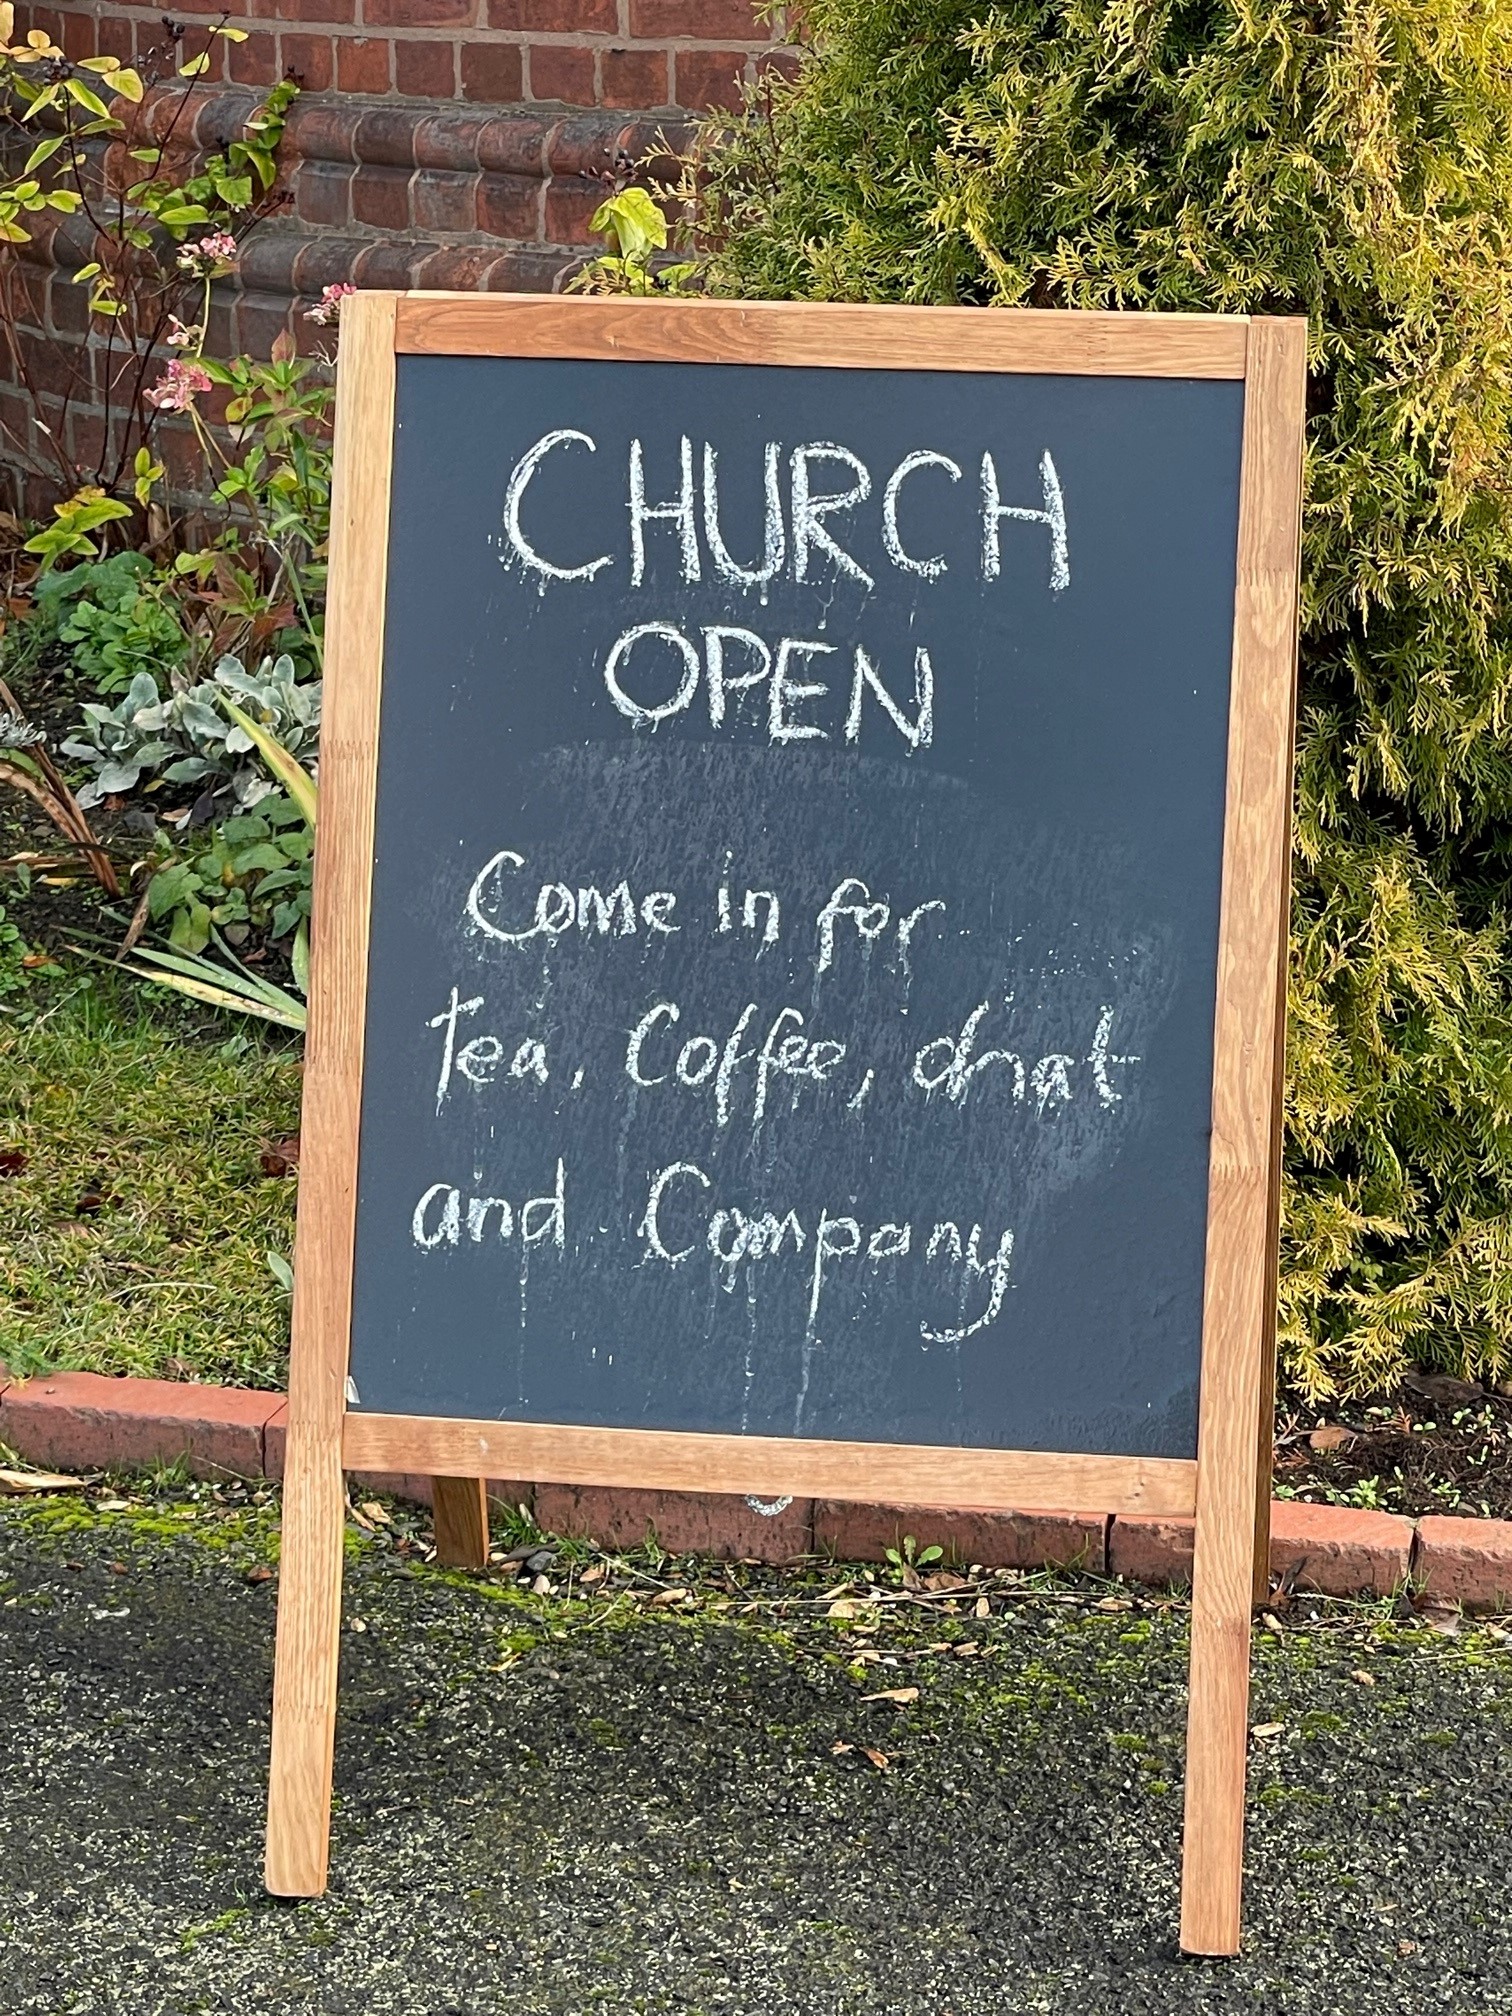 CHURCH
OPEN
Come in for
Tea, Coffee, chat
and Company